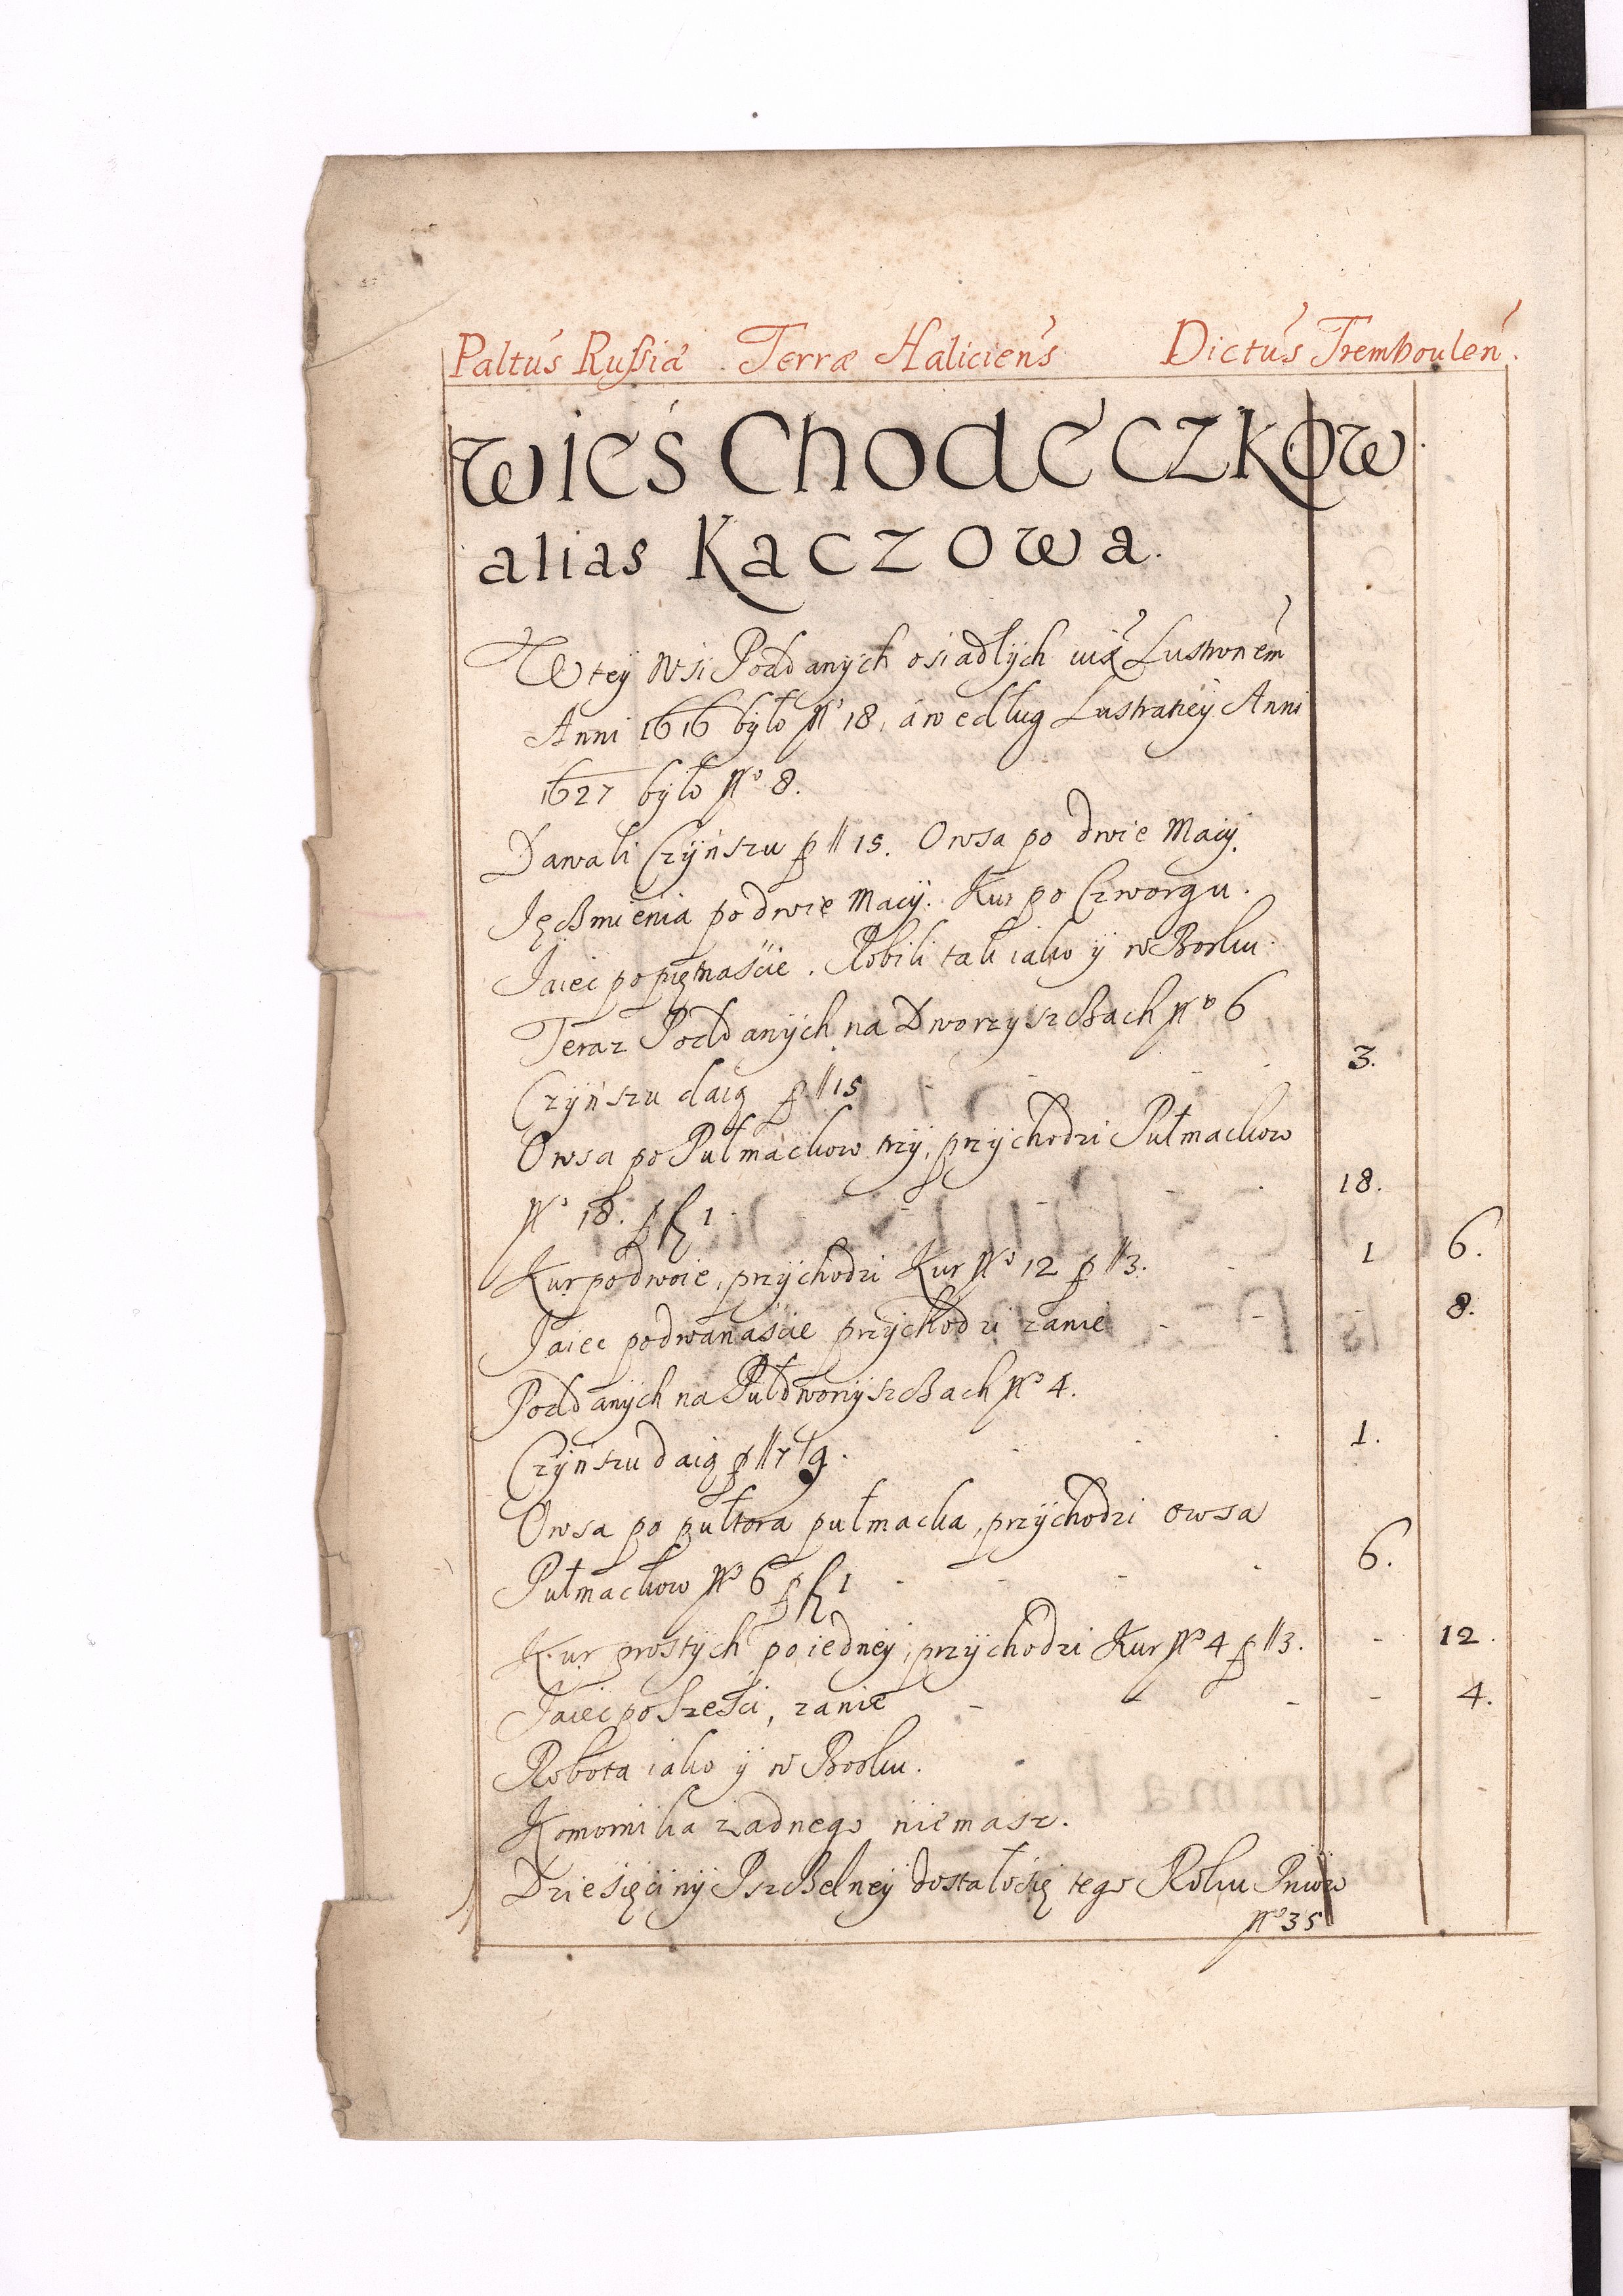 Paltus Russiæ Terræ Haliciens Dictus Tremboulen.
Wieś Chodeczkow
alias Kaczowa.
W tey Wsi Poddanych osiadłych Lustronem
Anni 1616 było No 18, a według Lustratiey Anni
1627 było No 8.
Dawali Czynszu p ǁ 15. Owsa po dwie Macy.
Jęchmienia po dwie Macy. Kur po Czworgu.
Jaiec po piętnaście. Robili tak iako y w Borku
Teraz Poddanych na Dworzyszchach No 6
Czynszu daią p ǁ 15 - - - 3.
Owsa po Pułmackow trzy, przychodzi Pułmackow
No 18. p fl 1 - - - 18.
Kur po dwoie, przychodzi Kur No 12 p ǁ 3. - 1 6.
Jaiec po dwanaście przychodzi zanie - - - 8.
Poddanych na Pułdworzyszchach No 4.
Czynszu daią p ǁ 7 - - 1.
Owsa po pułtora pułmacka, przychodzi owsa
Pułmackow No 6 p fl 1 - - - - 6.
Kur prostych po iedney, przychodzi Kur No 4 p ǁ 3. - 12.
Jaiec po sześci, zanie - - - - 4.
Robota iako y w Borku.
Komornika żadnego niemasz.
Dziesięciny Pszchelney dostało się tego Roku Pniow
No 35